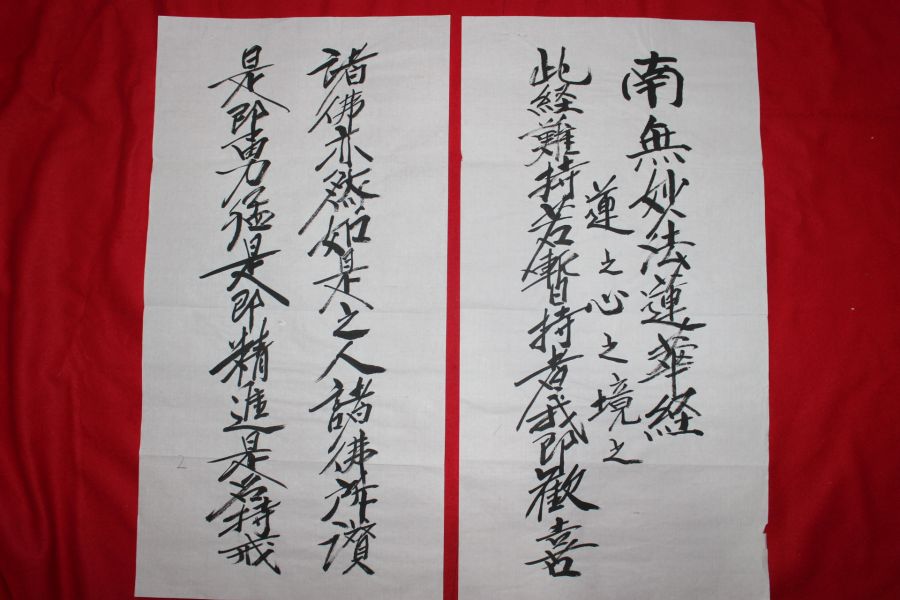 南無妙法蓮華経
蓮之心之境之
此経難持若暫持者我即歡喜
諸佛亦然如是之人諸佛所讃
是即勇猛是即精進是名持戒
2